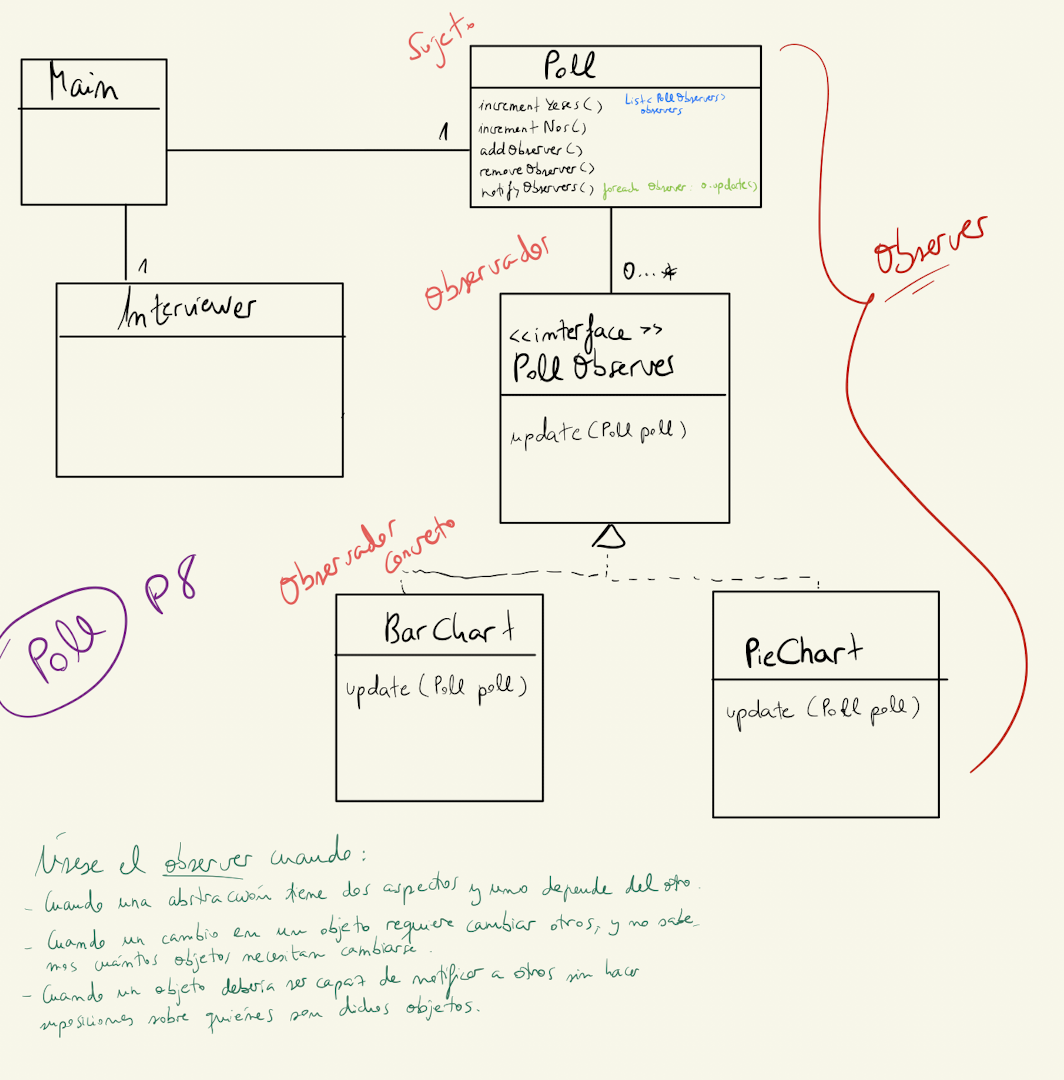 Sujeto
Main
Poll
increment Yeses()
List<PollObservers>
observers
increment Nos()
addObserver()
removeObserver()
notifyObservers() foreach Observer: o.update()
1
1
0...*
Observer
Observador
Interviewer
<<interface>>
Poll Observer
update(Poll poll)
Observador
Concreto
Poll
P8
BarChart
update(Poll poll)
PieChart
update(Poll poll)
Úsese el observer cuando:
- Cuando una abstracción tiene dos aspectos y uno depende del otro.
- Cuando un cambio en un objeto requiere cambiar otros, y no sabe-
mos cuántos objetos necesitan cambiarse.
- Cuando un objeto debería ser capaz de notificar a otros sin hacer
suposiciones sobre quiénes son dichos objetos.